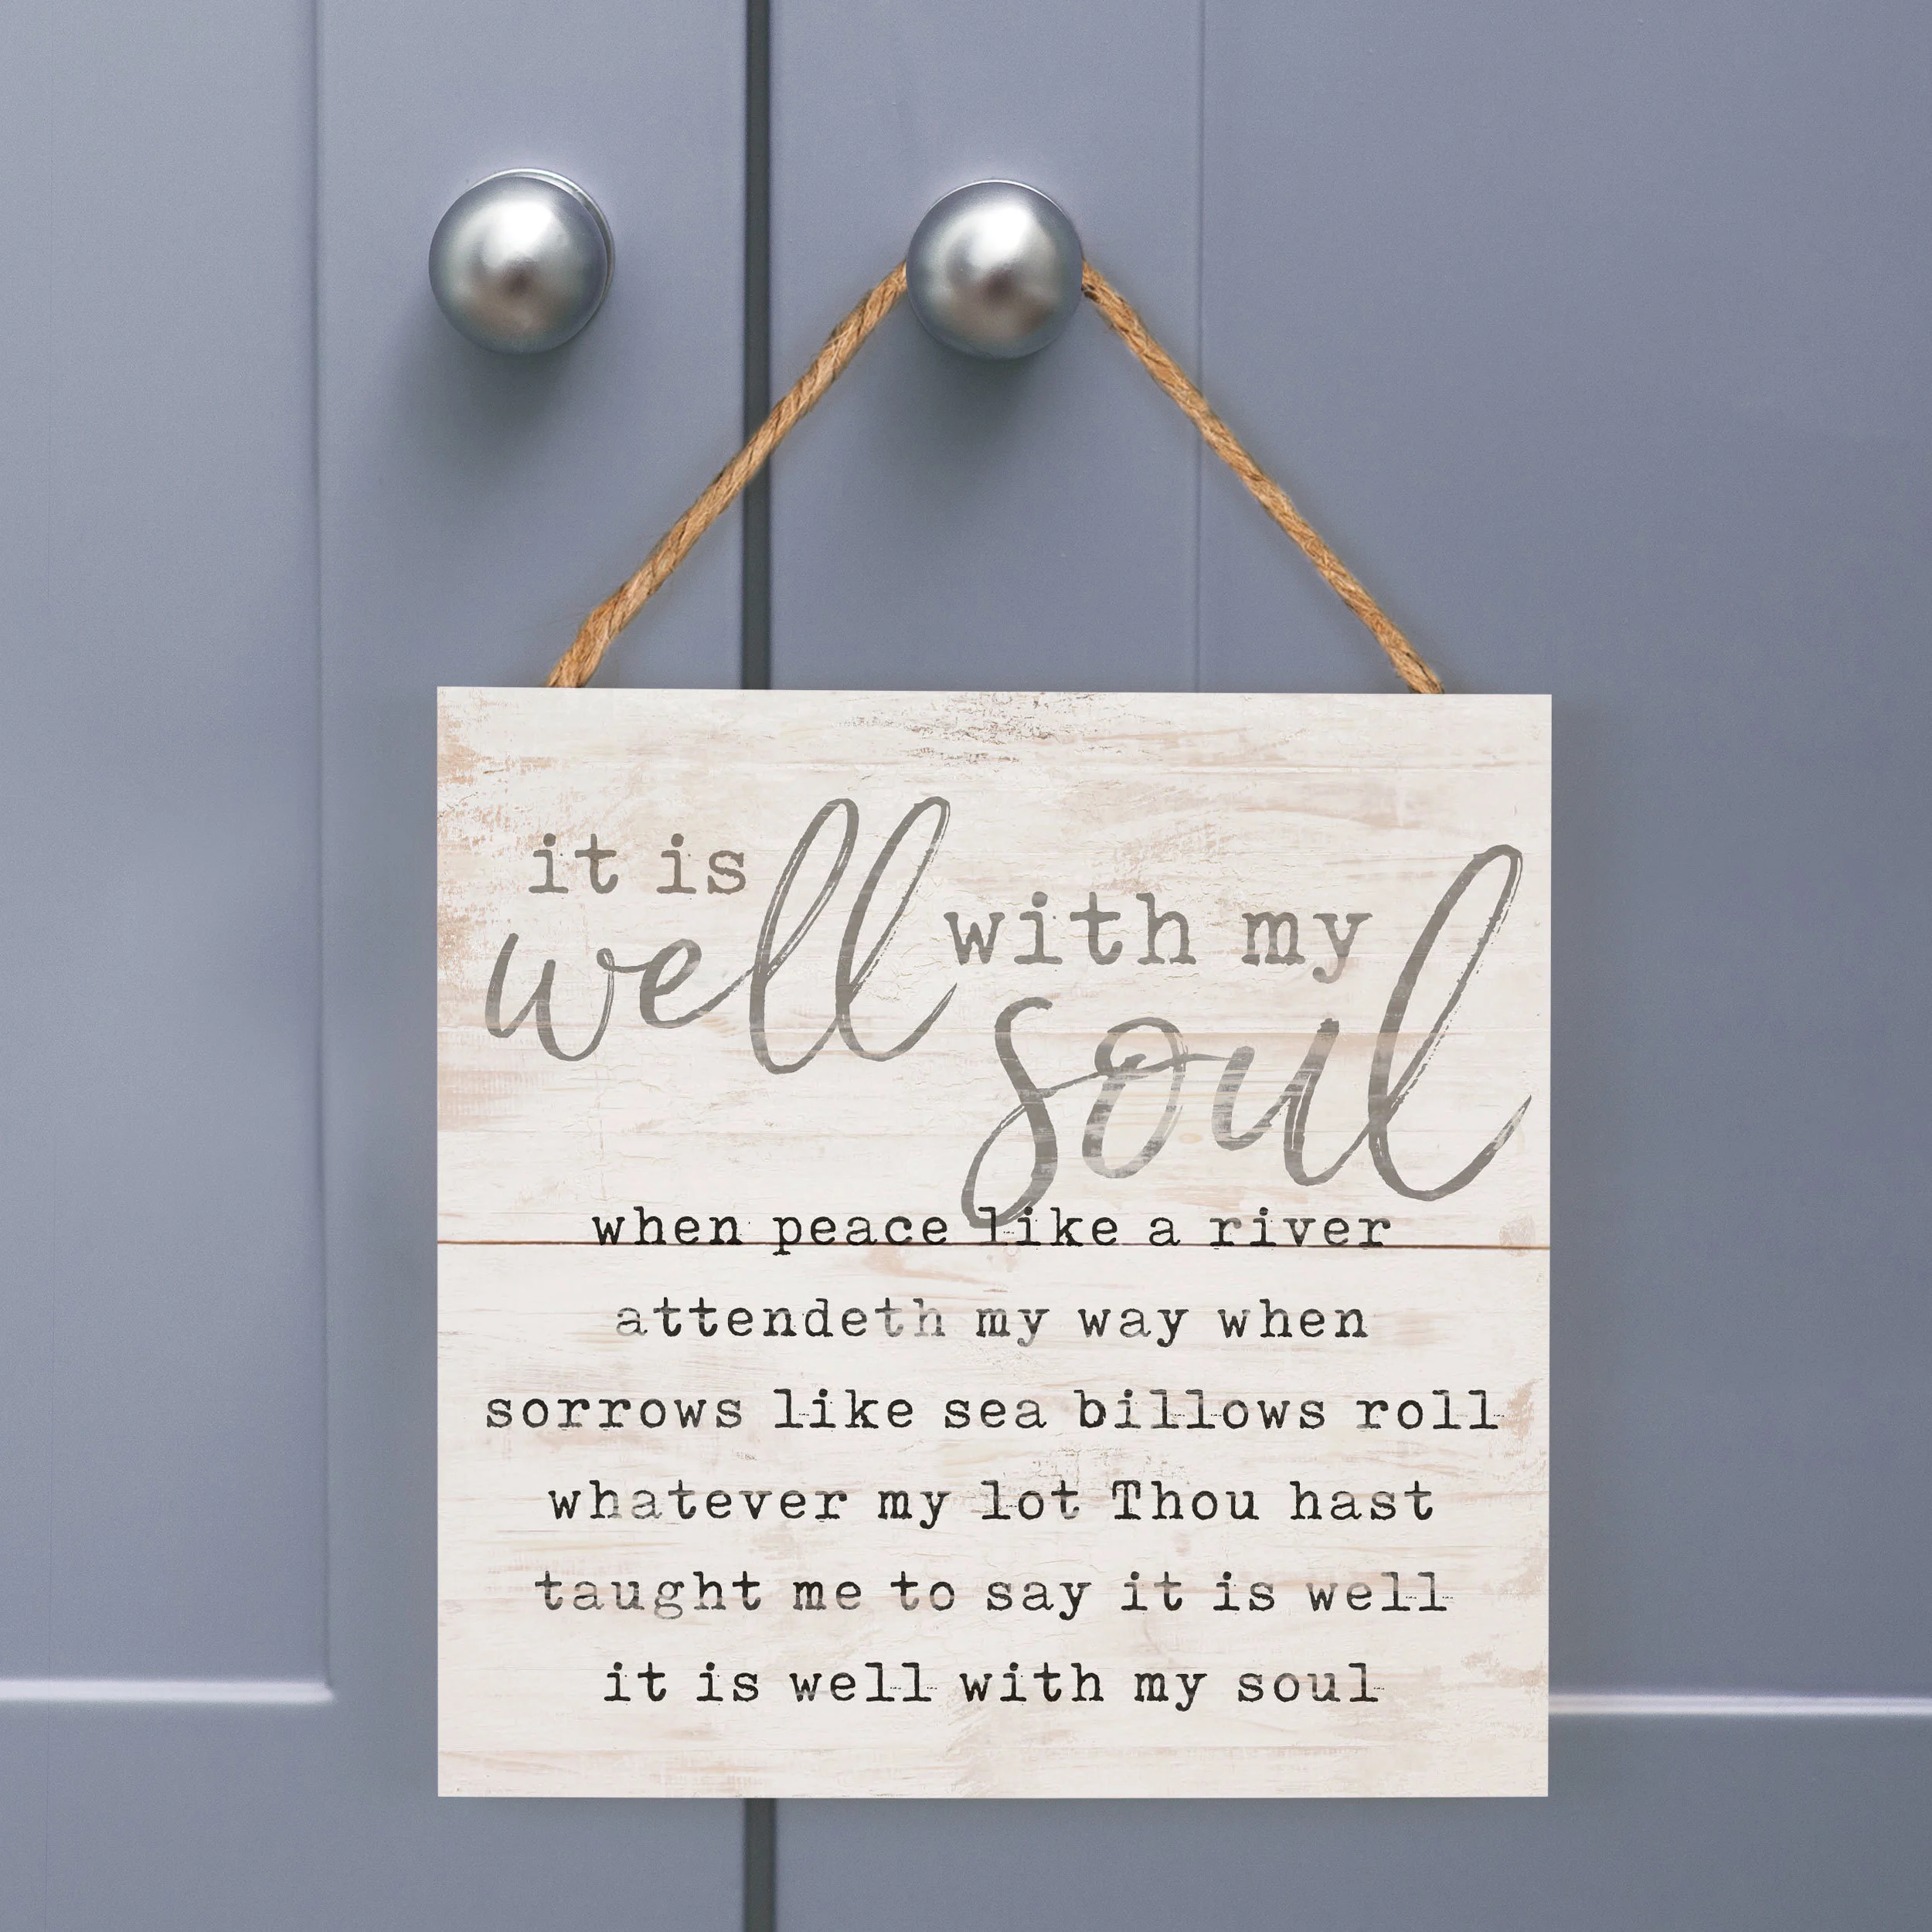 it is
well
with my
soul
when peace like a river
attendeth my way when
sorrows like sea billows roll
whatever my lot Thou hast
taught me to say it is well
it is well with my soul